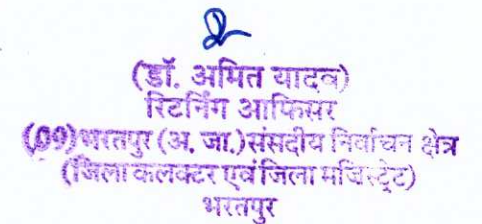 (डॉ. अमित यादव)
रिटर्निंग आफिसर
(09) भरतपुर (अ. जा.) संसदीय निर्वाचन क्षेत्र
(जिला कलक्टर एवं जिला मजिस्ट्रेट)
भरतपुर